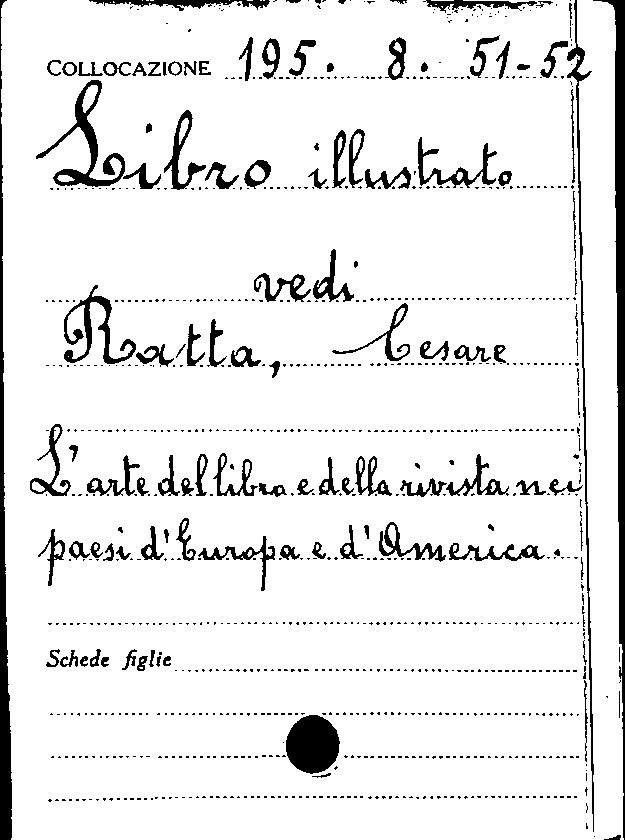 COLLOCAZIONE 195. 8. 51-52
Libro illustrato
vedi
Ratta, Cesare
L'arte del libro e della rivista nei
paesi d'Europa e d'America.
Schede figlie